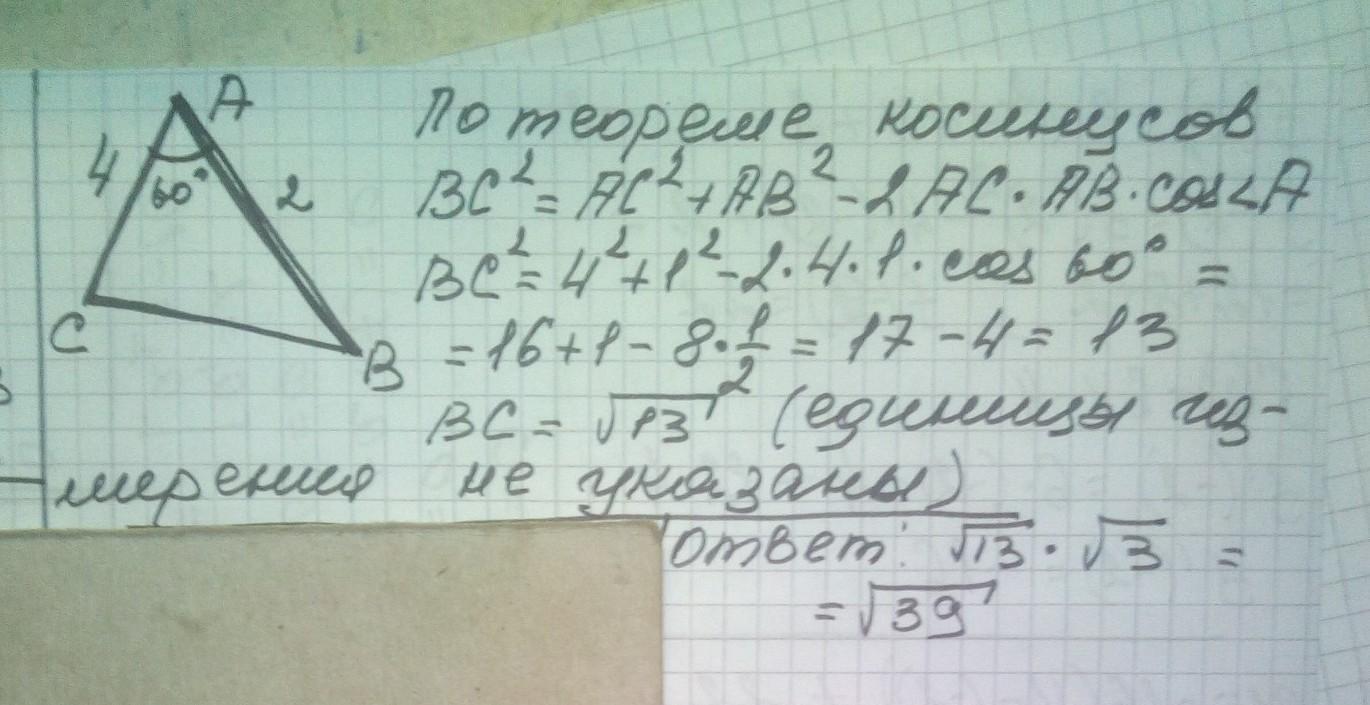 A
4
60°
2
C
B
По теореме косинусов
BC² = AC² + AB² - 2AC · AB · cos∠A
BC² = 4² + 1² - 2 · 4 · 1 · cos 60° =
= 16 + 1 - 8 · 1/2 = 17 - 4 = 13
BC = √13 (единицы из-
мерения не указаны)
Ответ: √13 · √3 =
= √39